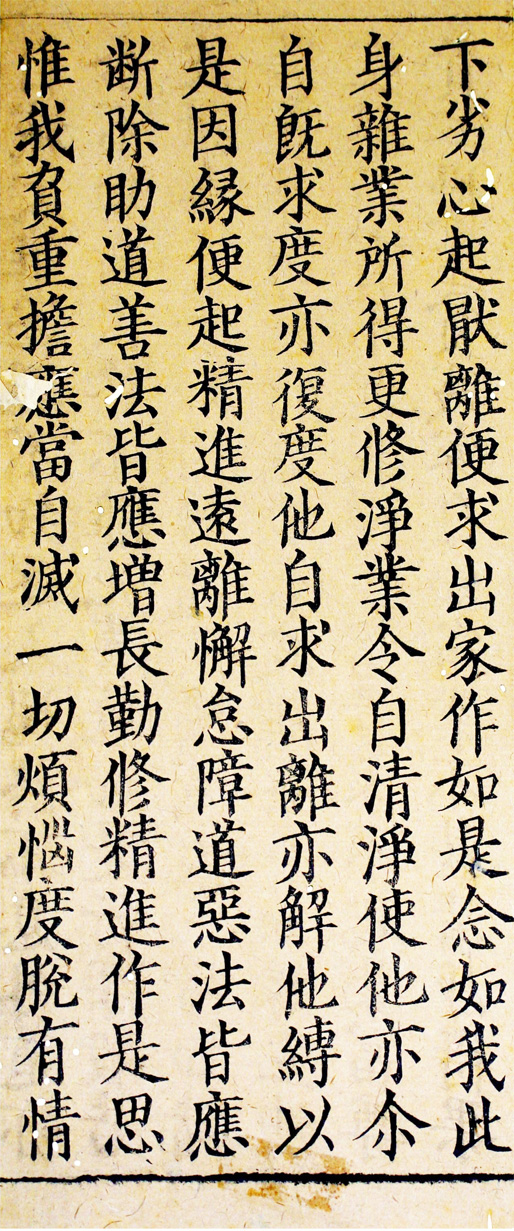 下劣心起猒離便求出家作如是念如我此
身雜業所得更修淨業令自清淨使他亦尒
自既求度亦復度他自求出離亦解他縛以
是因緣便起精進遠離懈怠障道惡法皆應
断除助道善法皆應增長勤修精進作是思
惟我負重擔應當自滅一切煩惱度脫有情